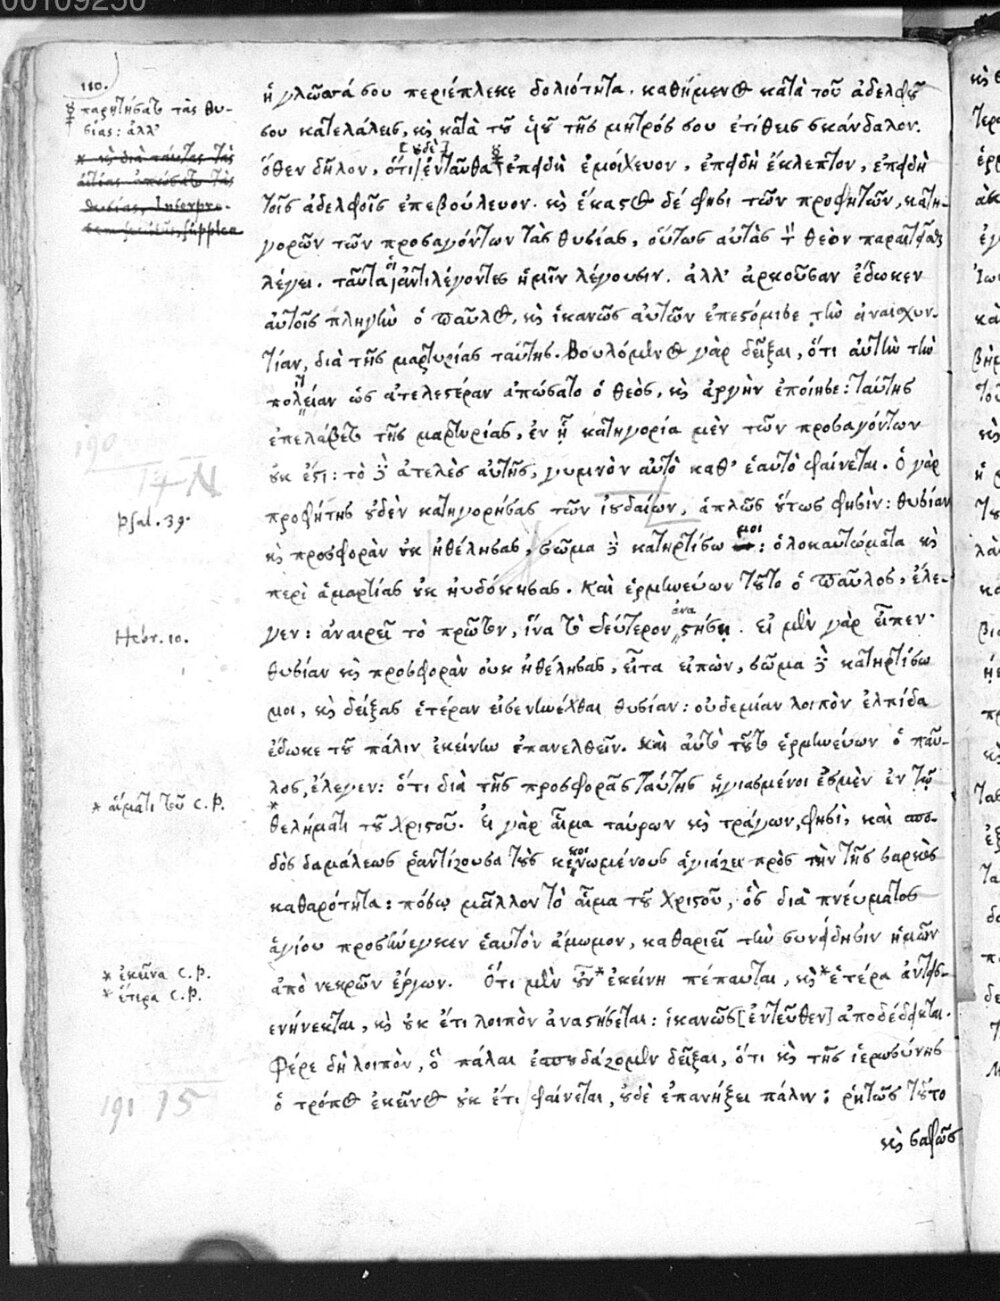 00109230
110.
ἡ γλῶσσά σου περιέπλεκε δολιότητα. καθήμενος κατὰ τοῦ ἀδελφοῦ
σου κατελάλεις, κ̀ς κατὰ τοῦ ὑοῦ τῆς μητρός σου ἐτίθεις σκάνδαλον.
ὅθεν δῆλον, ὅτι [οὐδὲ] ἐνταῦθα ἐπειδὴ ἐμοίχευον, ἐπειδὴ ἔκλεπτον, ἐπειδὴ
τοῖς ἀδελφοῖς ἐπεβούλευον. κ̀ς ἕκαστος δέ φησι τῶν προφητῶν, κατη-
γορῶν τῶν προσαγόντων τὰς θυσίας, οὕτως αὐτὰς τὸν θεὸν παραιτεῖσθαι
λέγει. ταῦτα ἀντιλέγοντες ἡμῖν λέγουσιν. ἀλλ' ἀρκοῦσαν ἔδωκεν
αὐτοῖς πληγὴν ὁ παῦλος, κ̀ς ἱκανῶς αὐτῶν ἐπεστόμισε τὴν ἀναισχυν-
τίαν, διὰ τῆς μαρτυρίας ταύτης. Βουλόμενος γὰρ δεῖξαι, ὅτι αὐτὴν τὴν
πολιτείαν ὡς ἀτελεστέραν ἀπώσατο ὁ θεὸς, κ̀ς ἀργὴν ἐποίησε: ταύτης
ἐπελάβετο τῆς μαρτυρίας, ἐν ᾗ κατηγορία μὲν τῶν προσαγόντων
οὐκ ἔστι: τὸ δὲ ἀτελὲς αὐτῆς, γυμνὸν αὐτὸ καθ' ἑαυτὸ φαίνεται. Ὁ γὰρ
προφήτης οὐδὲν κατηγορήσας τῶν ἰουδαίων, ἁπλῶς οὕτως φησίν: θυσίαν
κ̀ς προσφορὰν οὐκ ἠθέλησας, σῶμα δὲ κατηρτίσω μοι: ὁλοκαυτώματα κ̀ς
περὶ ἁμαρτίας οὐκ ηὐδόκησας. Καὶ ἑρμηνεύων τοῦτο ὁ παῦλος, ἔλε-
γεν: ἀναιρεῖ τὸ πρῶτον, ἵνα τὸ δεύτερον ἀναστήσῃ. εἰ μὲν γὰρ εἶπεν·
θυσίαν κ̀ς προσφορὰν οὐκ ἠθέλησας, εἶτα εἰπὼν, σῶμα δὲ κατηρτίσω
μοι, κ̀ς δείξας ἑτέραν εἰσενηνέχθαι θυσίαν: οὐδεμίαν λοιπὸν ἐλπίδα
ἔδωκε τοῦ πάλιν ἐκείνην ἐπανελθεῖν. Καὶ αὐτὸ τοῦτο ἑρμηνεύων ὁ παῦ-
λος, ἔλεγεν: ὅτι διὰ τῆς προσφορᾶς ταύτης ἡγιασμένοι ἐσμὲν ἐν τῷ
*θελήματι τοῦ Χριστοῦ. Εἰ γὰρ αἷμα ταύρων κ̀ς τράγων, φησὶ, καὶ σπο-
δὸς δαμάλεως ῥαντίζουσα τοὺς κεκοινωμένους ἁγιάζει πρὸς τὴν τῆς σαρκὸς
καθαρότητα: πόσῳ μᾶλλον τὸ αἷμα τοῦ Χριστοῦ, ὃς διὰ πνεύματος
ἁγίου προσήνεγκεν ἑαυτὸν ἄμωμον, καθαριεῖ τὴν συνείδησιν ἡμῶν
ἀπὸ νεκρῶν ἔργων. Ὅτι μὲν οὖν *ἐκείνη πέπαυται, κ̀ς *ἑτέρα ἀντεισ-
ενήνεκται, κ̀ς οὐκ ἔτι λοιπὸν ἀναστήσεται: ἱκανῶς [ἐντεῦθεν] ἀποδέδεικται.
Φέρε δὴ λοιπὸν, ὃ πάλαι ἐσπουδάζομεν δεῖξαι, ὅτι κ̀ς τῆς ἱερωσύνης
ὁ τρόπος ἐκεῖνος οὐκ ἔτι φαίνεται, οὐδὲ ἐπανήξει πάλιν: ῥητῶς τοῦτο
κ̀ς σαφῶς
παρητήσατο τὰς θυ-
σίας: ἀλλ'
* κ̀ς διὰ ταύτας τὰς
αἰτίας ἀπώσατο τὰς
θυσίας. Interpre-
190
14 N
Psal. 39.
Hebr. 10.
* αἵματι τοῦ C.P.
* ἐκεῖνα C.P.
* ἕτερα C.P.
191 15